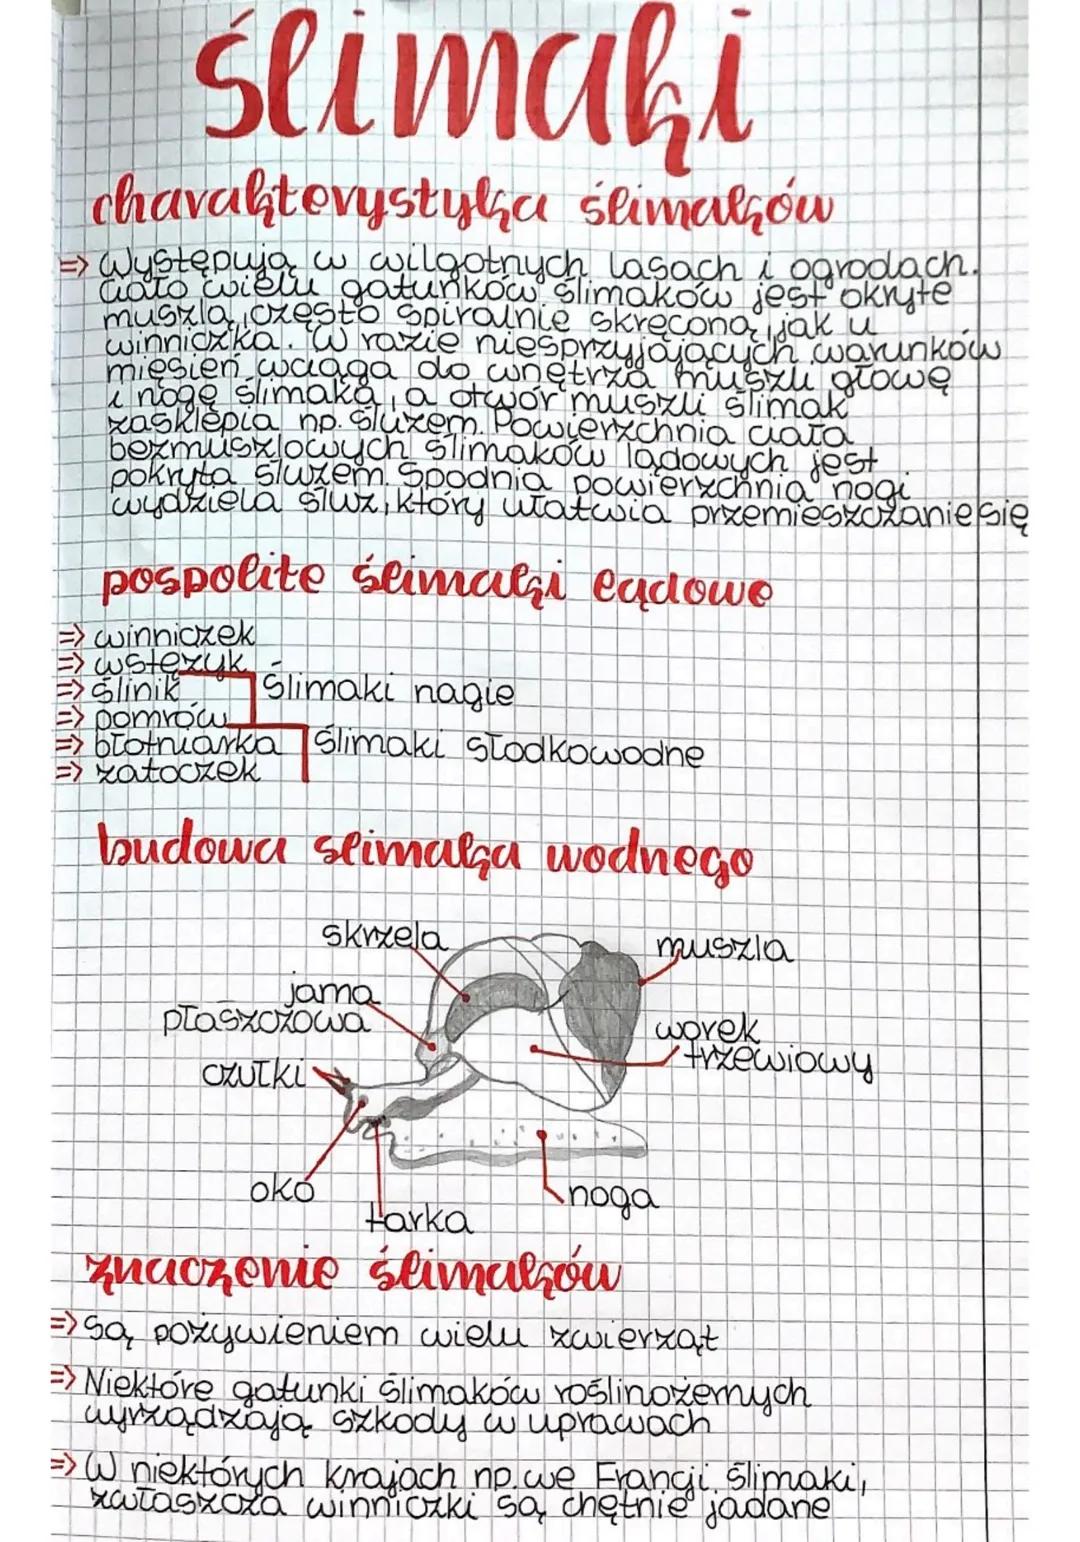 ślimaki
charakterystyka ślimaków
=> Występują w wilgotnych lasach i ogrodach.
Ciało wielu gatunków ślimaków jest okryte
muszlą, często spiralnie skręconą, jak u
winniczka. W razie niesprzyjających warunków
mięsień wciąga do wnętrza muszli głowę
i nogę ślimaka, a otwór muszli ślimak
zasklepia np. śluzem. Powierzchnia ciała
bezmuszlowych ślimaków lądowych jest
pokryta śluzem. Spodnia powierzchnia nogi
wydziela śluz, który ułatwia przemieszczanie się
pospolite ślimaki lądowe
=> winniczek
=> wstężyk
=> ślinik
ślimaki nagie
=> pomrów
=> błotniarka
ślimaki słodkowodne
=> zatoczek
budowa slimaka wodnego
skrzela
muszla
jama
płaszczowa
worek
trzewiowy
czułki
oko
noga
tarka
znaczenie ślimaków
=> są pożywieniem wielu zwierząt
=> Niektóre gatunki ślimaków roślinożernych
wyrządzają szkody w uprawach
=> W niektórych krajach np. we Francji ślimaki,
zwłaszcza winniczki są chętnie jadane